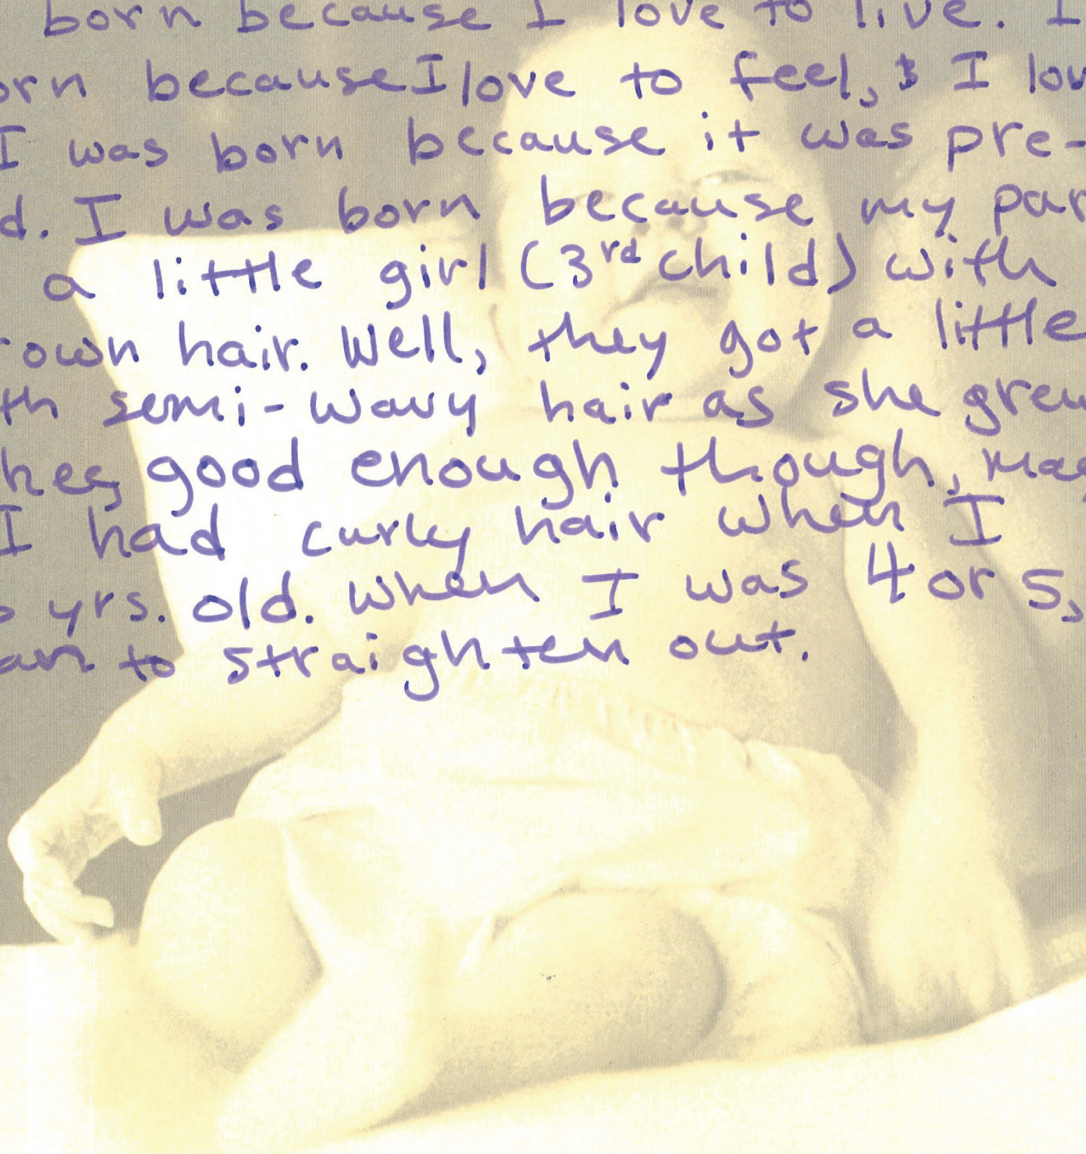 born because I love to live. I
orn because I love to feel, & I lov
I was born because it was pre-
d. I was born because my par
a little girl (3rd child) with
rown hair. Well, they got a little
th semi-wavy hair as she grew
good enough though,
I had curly hair when I
yrs. old. When I was 4 or 5,
an to straighten out.